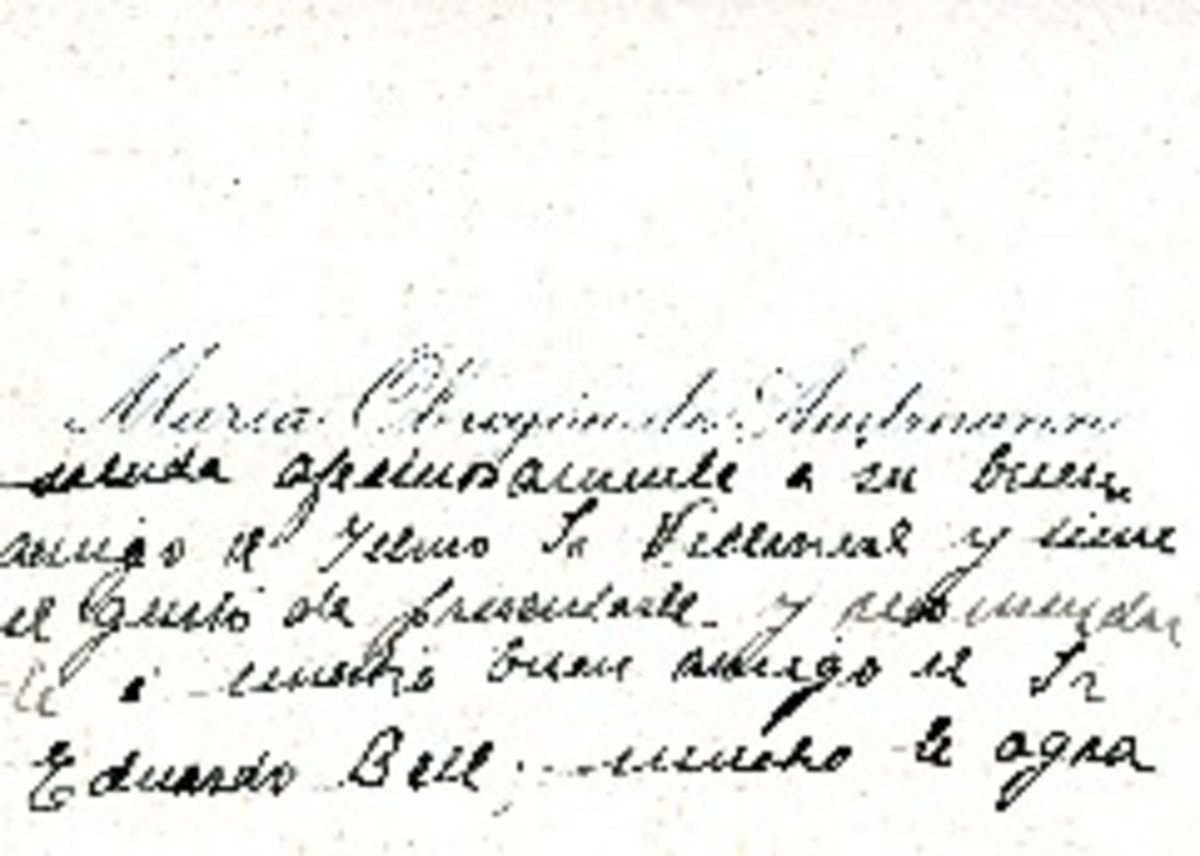 María
saluda afectuosamente a su buen
amigo el Yltmo Sr Villarreal y tiene
el gusto de presentarle y recomendar
le á nuestro buen amigo el Sr
Eduardo Bell; mucho le agra